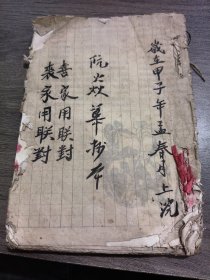 歲在甲子年孟春月上浣
阮火炊筆抄本
喜家用联對
喪家用联對